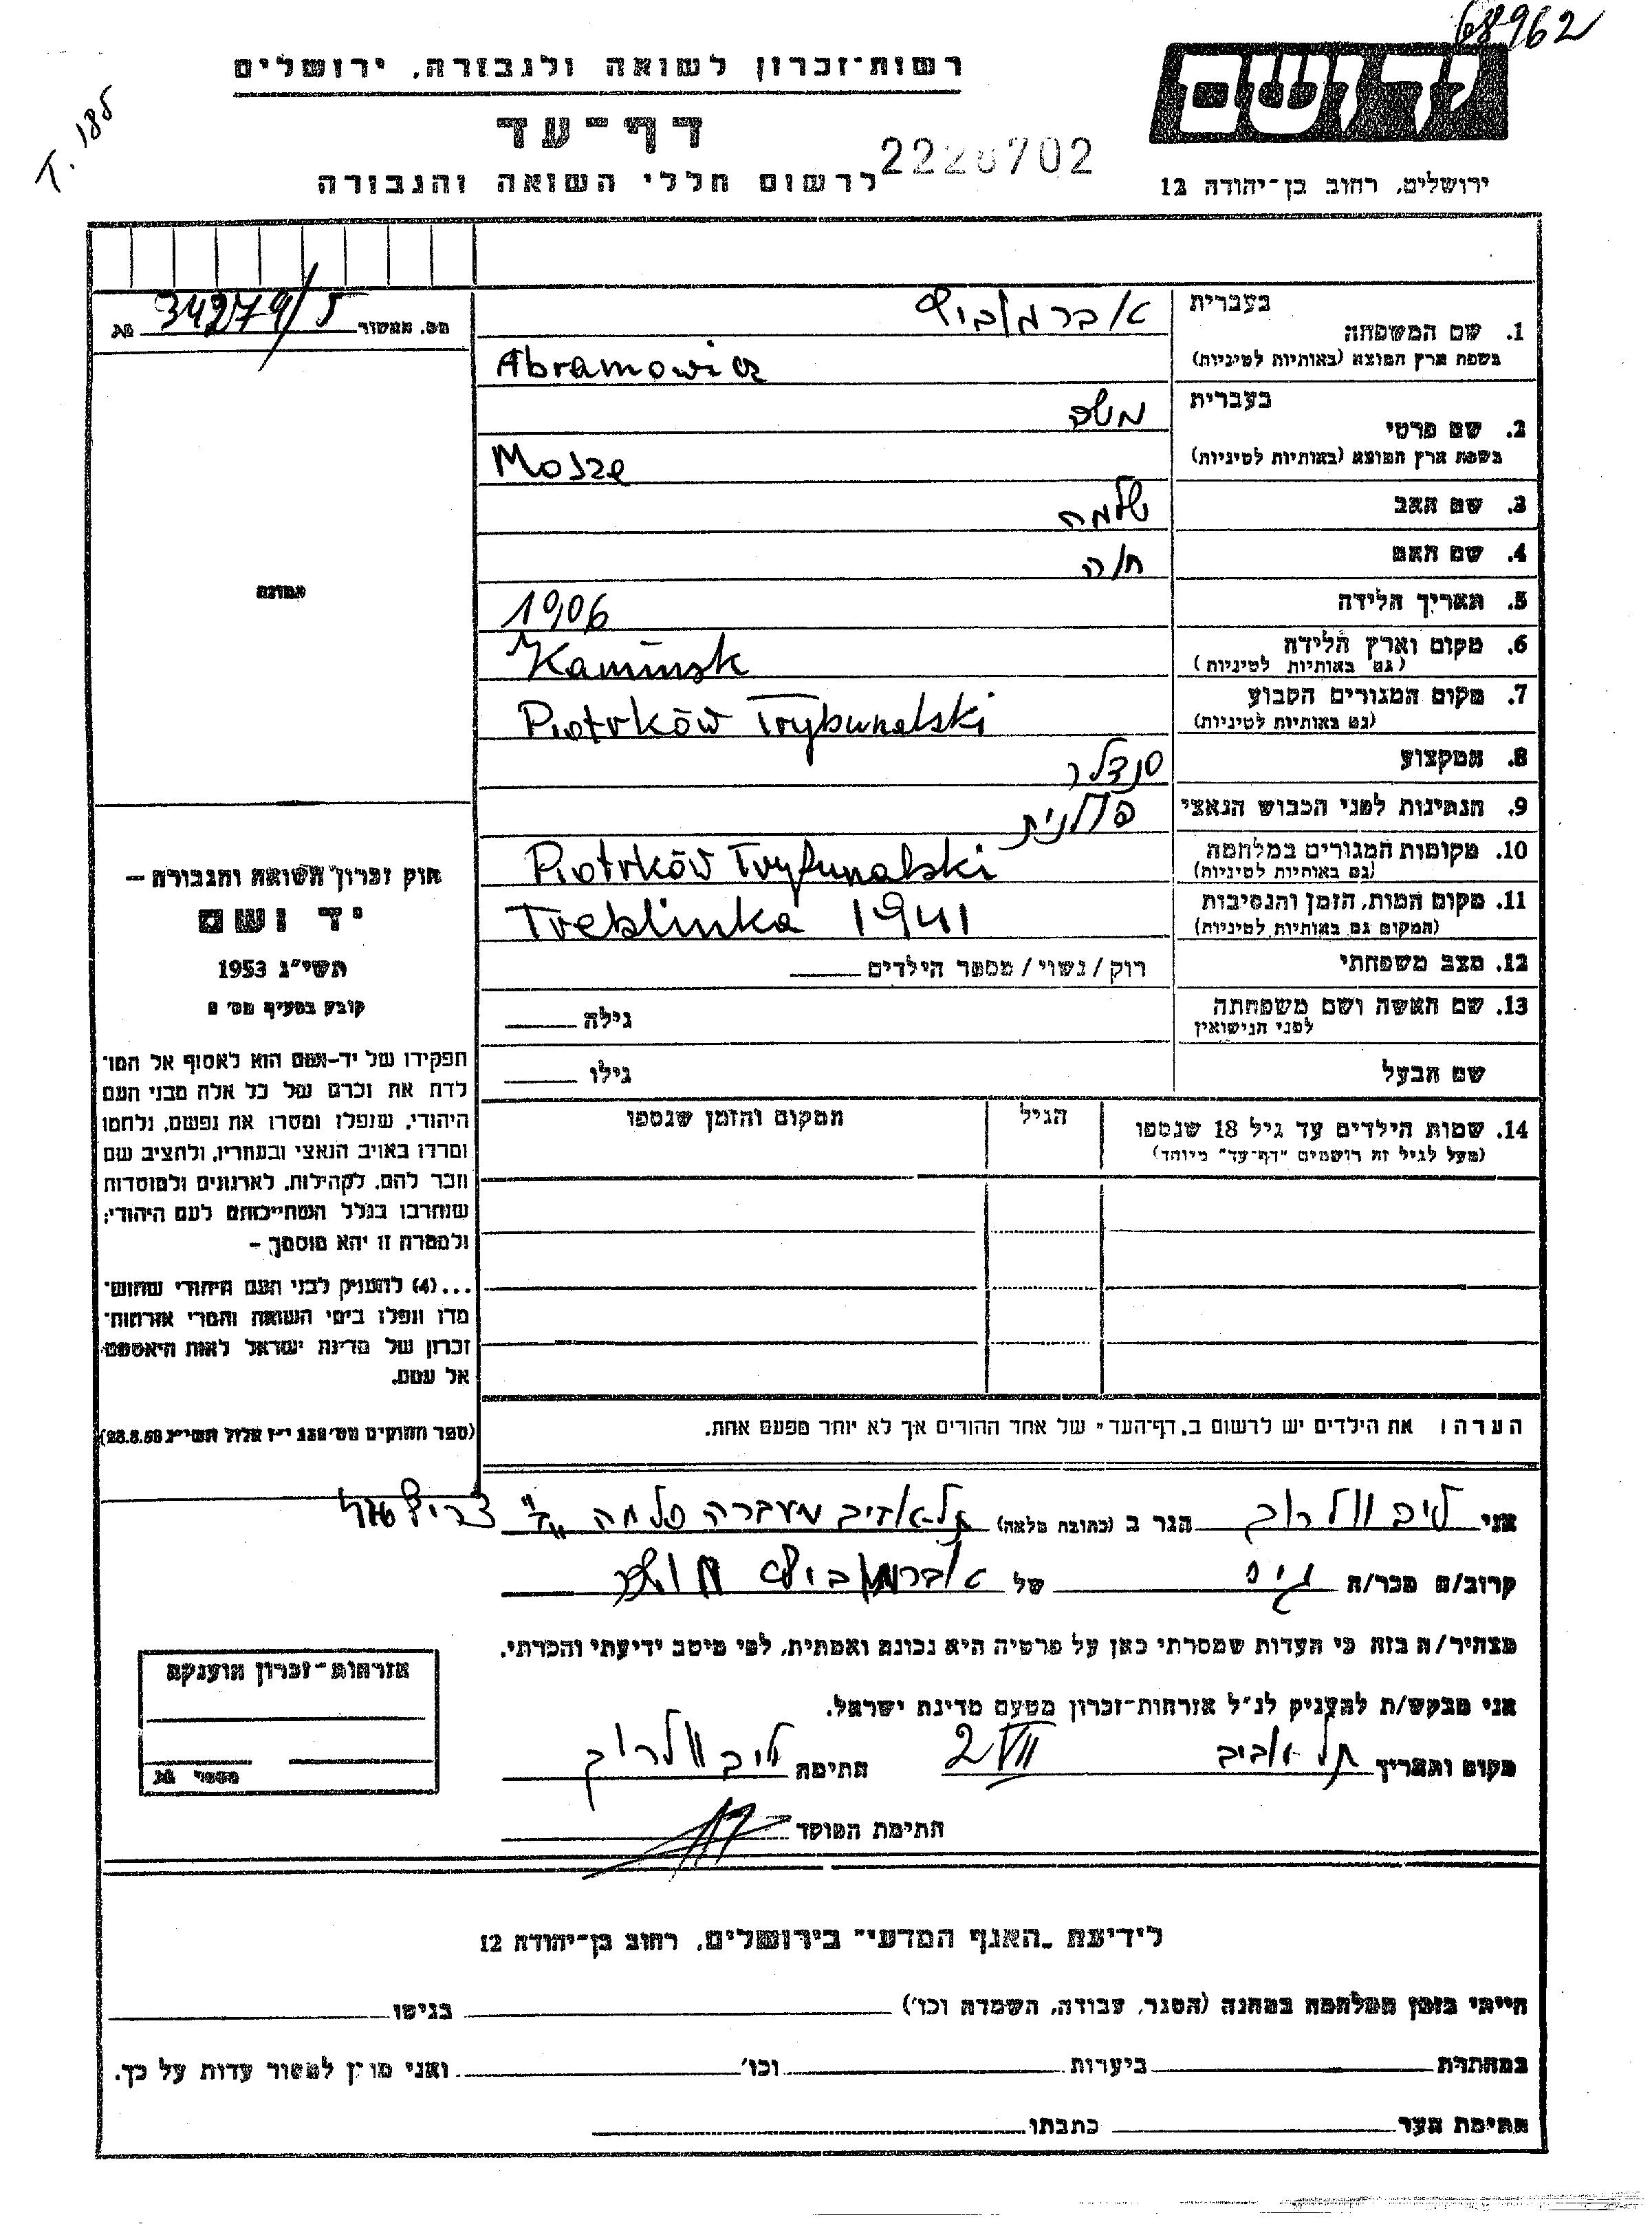 68962
ידושם
רשות-זכרון לשואה ולגבורה, ירושלים
ד.185
דף-עד
לרשום חללי השואה והגבורה
ירושלים, רחוב בן-יהודה 12
מס. מאשר 34279/5
1. שם המשפחה
בעברית אברמוביץ
בשפת ארץ המוצא (באותיות לטיניות) Abramowicz
2. שם פרטי
בעברית משה
בשפת ארץ המוצא (באותיות לטיניות) Mosze
3. שם האב שלמה
4. שם האם חוה
5. תאריך הלידה 1906
6. מקום וארץ הלידה (גם באותיות לטיניות) Kamińsk
7. מקום המגורים הקבוע (גם באותיות לטיניות) Piotrków Trybunalski
8. המקצוע סנדלר
9. הנתינות לפני הכבוש הנאצי פולנית
10. מקומות המגורים במלחמה (גם באותיות לטיניות) Piotrków Trybunalski
11. מקום המות, הזמן והנסיבות (המקום גם באותיות לטיניות) Treblinka 1941
12. מצב משפחתי רוק / נשוי / מספר הילדים
13. שם האשה ושם משפחתה לפני הנישואין גילה
שם הבעל גילו
14. שמות הילדים עד גיל 18 שנספו הגיל המקום והזמן שנספו
(מעל לגיל זה רושמים "דף-עד" מיוחד)
הערה: את הילדים יש לרשום ב"דף-העד" של אחד ההורים אך לא יותר מפעם אחת.
תמונה
חוק זכרון השואה והגבורה –
יד ושם
תשי"ג 1953
קובע בסעיף מס'
תפקידו של יד-ושם הוא לאסוף אל המו־
לדת את זכרם של כל אלה מבני העם
היהודי, שנפלו ומסרו את נפשם, נלחמו
ומרדו באויב הנאצי ובעוזריו, ולהציב שם
וזכר להם, לקהילות, לארגונים ולמוסדות
שנחרבו בגלל השתייכותם לעם היהודי;
ולמטרה זו יהא מוסמך –
...(4) להעניק לבני העם היהודי שהוש־
מדו ונפלו בימי השואה והמרי אזרחות־
זכרון של מדינת ישראל לאות היאספם
אל עמם.
(ספר החוקים מס' 132 י"ז אלול תשי"ג 28.8.53)
אני לייב וולרוב הגר ב (כתובת מלאה) תל-אביב מעברה סלמה "ד" צריף
קרוב/ה מכר/ה גיס של אברמוביץ משה
מצהיר/ה בזה כי העדות שמסרתי כאן על פרטיה היא נכונה ואמתית, לפי מיטב ידיעתי והכרתי.
אני מבקש/ת להעניק לנ"ל אזרחות-זכרון מטעם מדינת ישראל.
מקום ותאריך תל אביב 2 VII חתימה לייב וולרוב
חתימת המוסד
אזרחות-זכרון הוענקה
מספר
לידיעת "האגף המדעי" בירושלים, רחוב בן-יהודה 12
הייתי בזמן המלחמה במחנה (הסגר, עבודה, השמדה וכו') בגיטו
במחתרת ביערות וכו' ואני מוכן למסור עדות על כך.
חתימת העד כתבתו